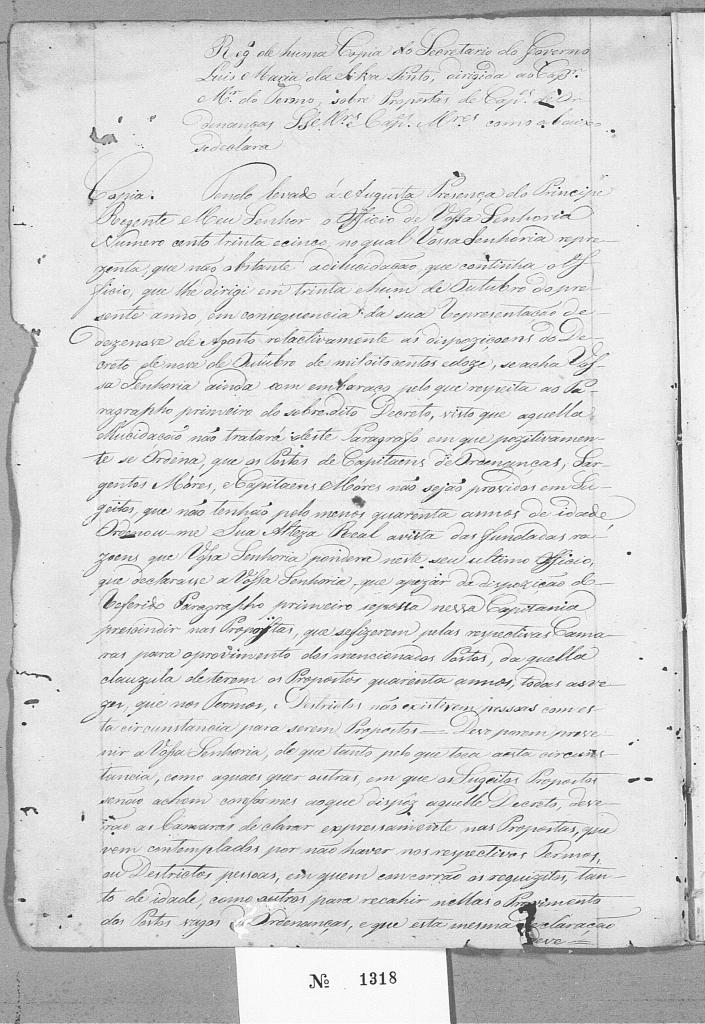 Reg. de huma Copia do Secretario do Governo
Luis Maria da Silva Pinto, dirigida ao Capm.
Mr. do Termo, sobre Propostas de Capes. de Or-
denanças, e Capes. Mres. como abaixo
se declara
Copia. Tendo levado á Augusta Presença do Principe
Regente Meu Senhor o Officio de Vossa Senhoria
Numero cento trinta e cinco, no qual Vossa Senhoria repre-
zenta, que não obstante a dilucidacão, que continha o Of-
ficio, que lhe dirigi em trinta e hum de Outubro do pre-
sente anno, em consequencia da sua Representacão de
dezenove de Agosto relactivamente as dispoziçoens do De-
creto de nove de Outubro de mil oitocentos e doze, se acha Vos-
sa Senhoria ainda com embaraço pelo que respeita ao Pa-
ragrapho primeiro do sobredito Decreto, visto que aquella
Elucidacão não tratará deste Paragrafo em que pozitivamen-
te se Ordena, que os Postos de Capitaens de Ordenancas, Sar-
gentos Móres, e Capitaens Móres não sejão providos em Su-
geitos, que não tenhão pelo menos quarenta annos de idade
Ordenou-me Sua Alteza Real a vista das fundadas ra-
zoens que Vossa Senhoria pondera neste seu ultimo Officio,
que declarasse a Vossa Senhoria, que apezar da dispozicão do
Referido Paragrapho primeiro se possa nessa Capitania
prescindir nas Propostas, que se fizerem pelas respectivas Cama-
ras para o provimento dos mencionados Postos, da quella
clauzula de terem os Propostos quarenta annos, todas as ve-
zes, que nos Termos, e Destrictos não existirem pessoas com es-
ta circunstancia para serem Propostos = Devo porem preve-
nir a Vossa Senhoria, de que tanto pelo que toca a esta circuns-
tancia, como a quaes quer outras, em que os Sugeitos Propostos
se não achem conformes ao que dispõz aquelle Decreto, deve-
rão as Camaras declarar expressamente nas Propostas, que
vem contemplados por não haver nos respectivos Termos,
ou Destrictos pessoas, em quem concorrão os requizitos, tan-
to de idade, como outros para recahir nellas o Provimento
dos Postos vagos de Ordenanças, e que esta mesma Declaracão
deve =
No 1318